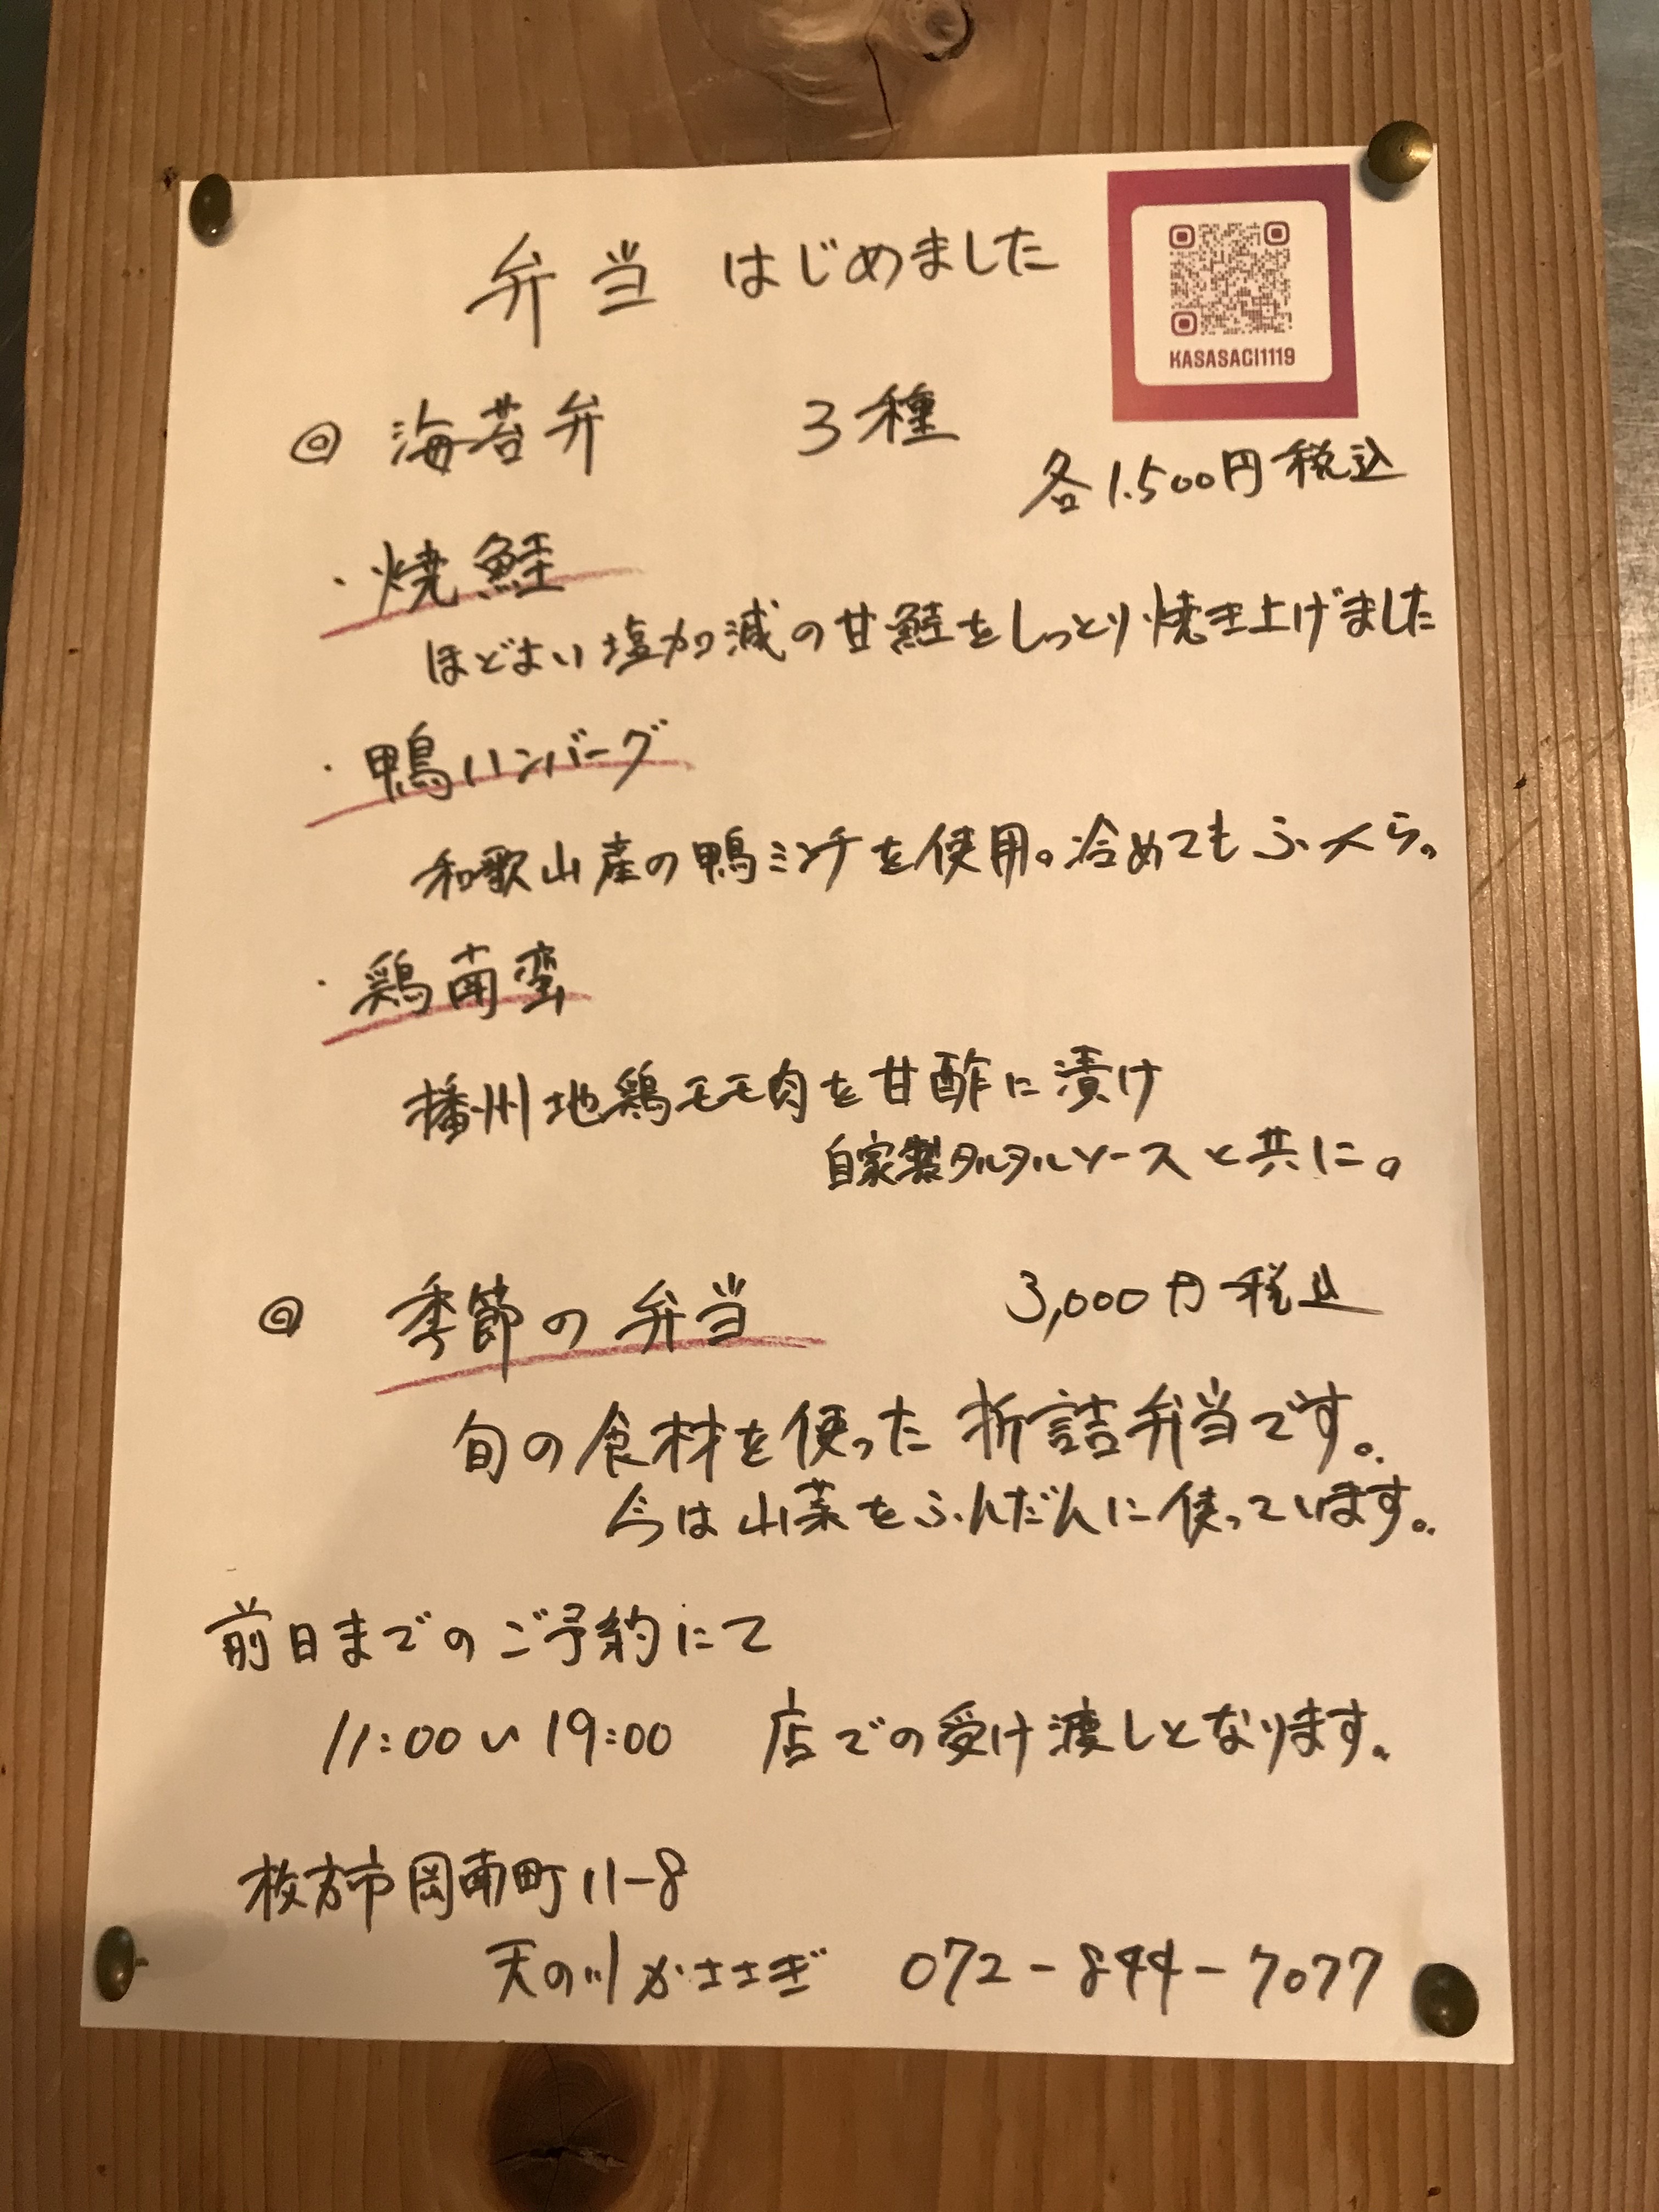 弁当 はじめました
KASASAGI1119
◎ 海苔弁 3種
各1.500円税込
・焼鮭
ほどよい塩加減の甘鮭をしっとり焼き上げました
・鴨ハンバーグ
和歌山産の鴨ミンチを使用。冷めてもふっくら。
・鶏南蛮
播州地鶏モモ肉を甘酢に漬け
自家製タルタルソースと共に。
◎ 季節の弁当 3,000円税込
旬の食材を使った折詰弁当です。
今は山菜をふんだんに使っています。
前日までのご予約にて
11:00〜19:00 店での受け渡しとなります。
枚方市岡南町11-8
天の川かささぎ 072-844-7077